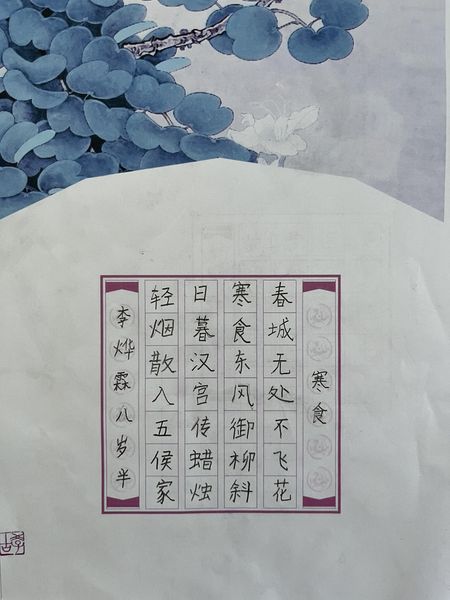 寒食
春城无处不飞花
寒食东风御柳斜
日暮汉宫传蜡烛
轻烟散入五侯家
李烨霖八岁半